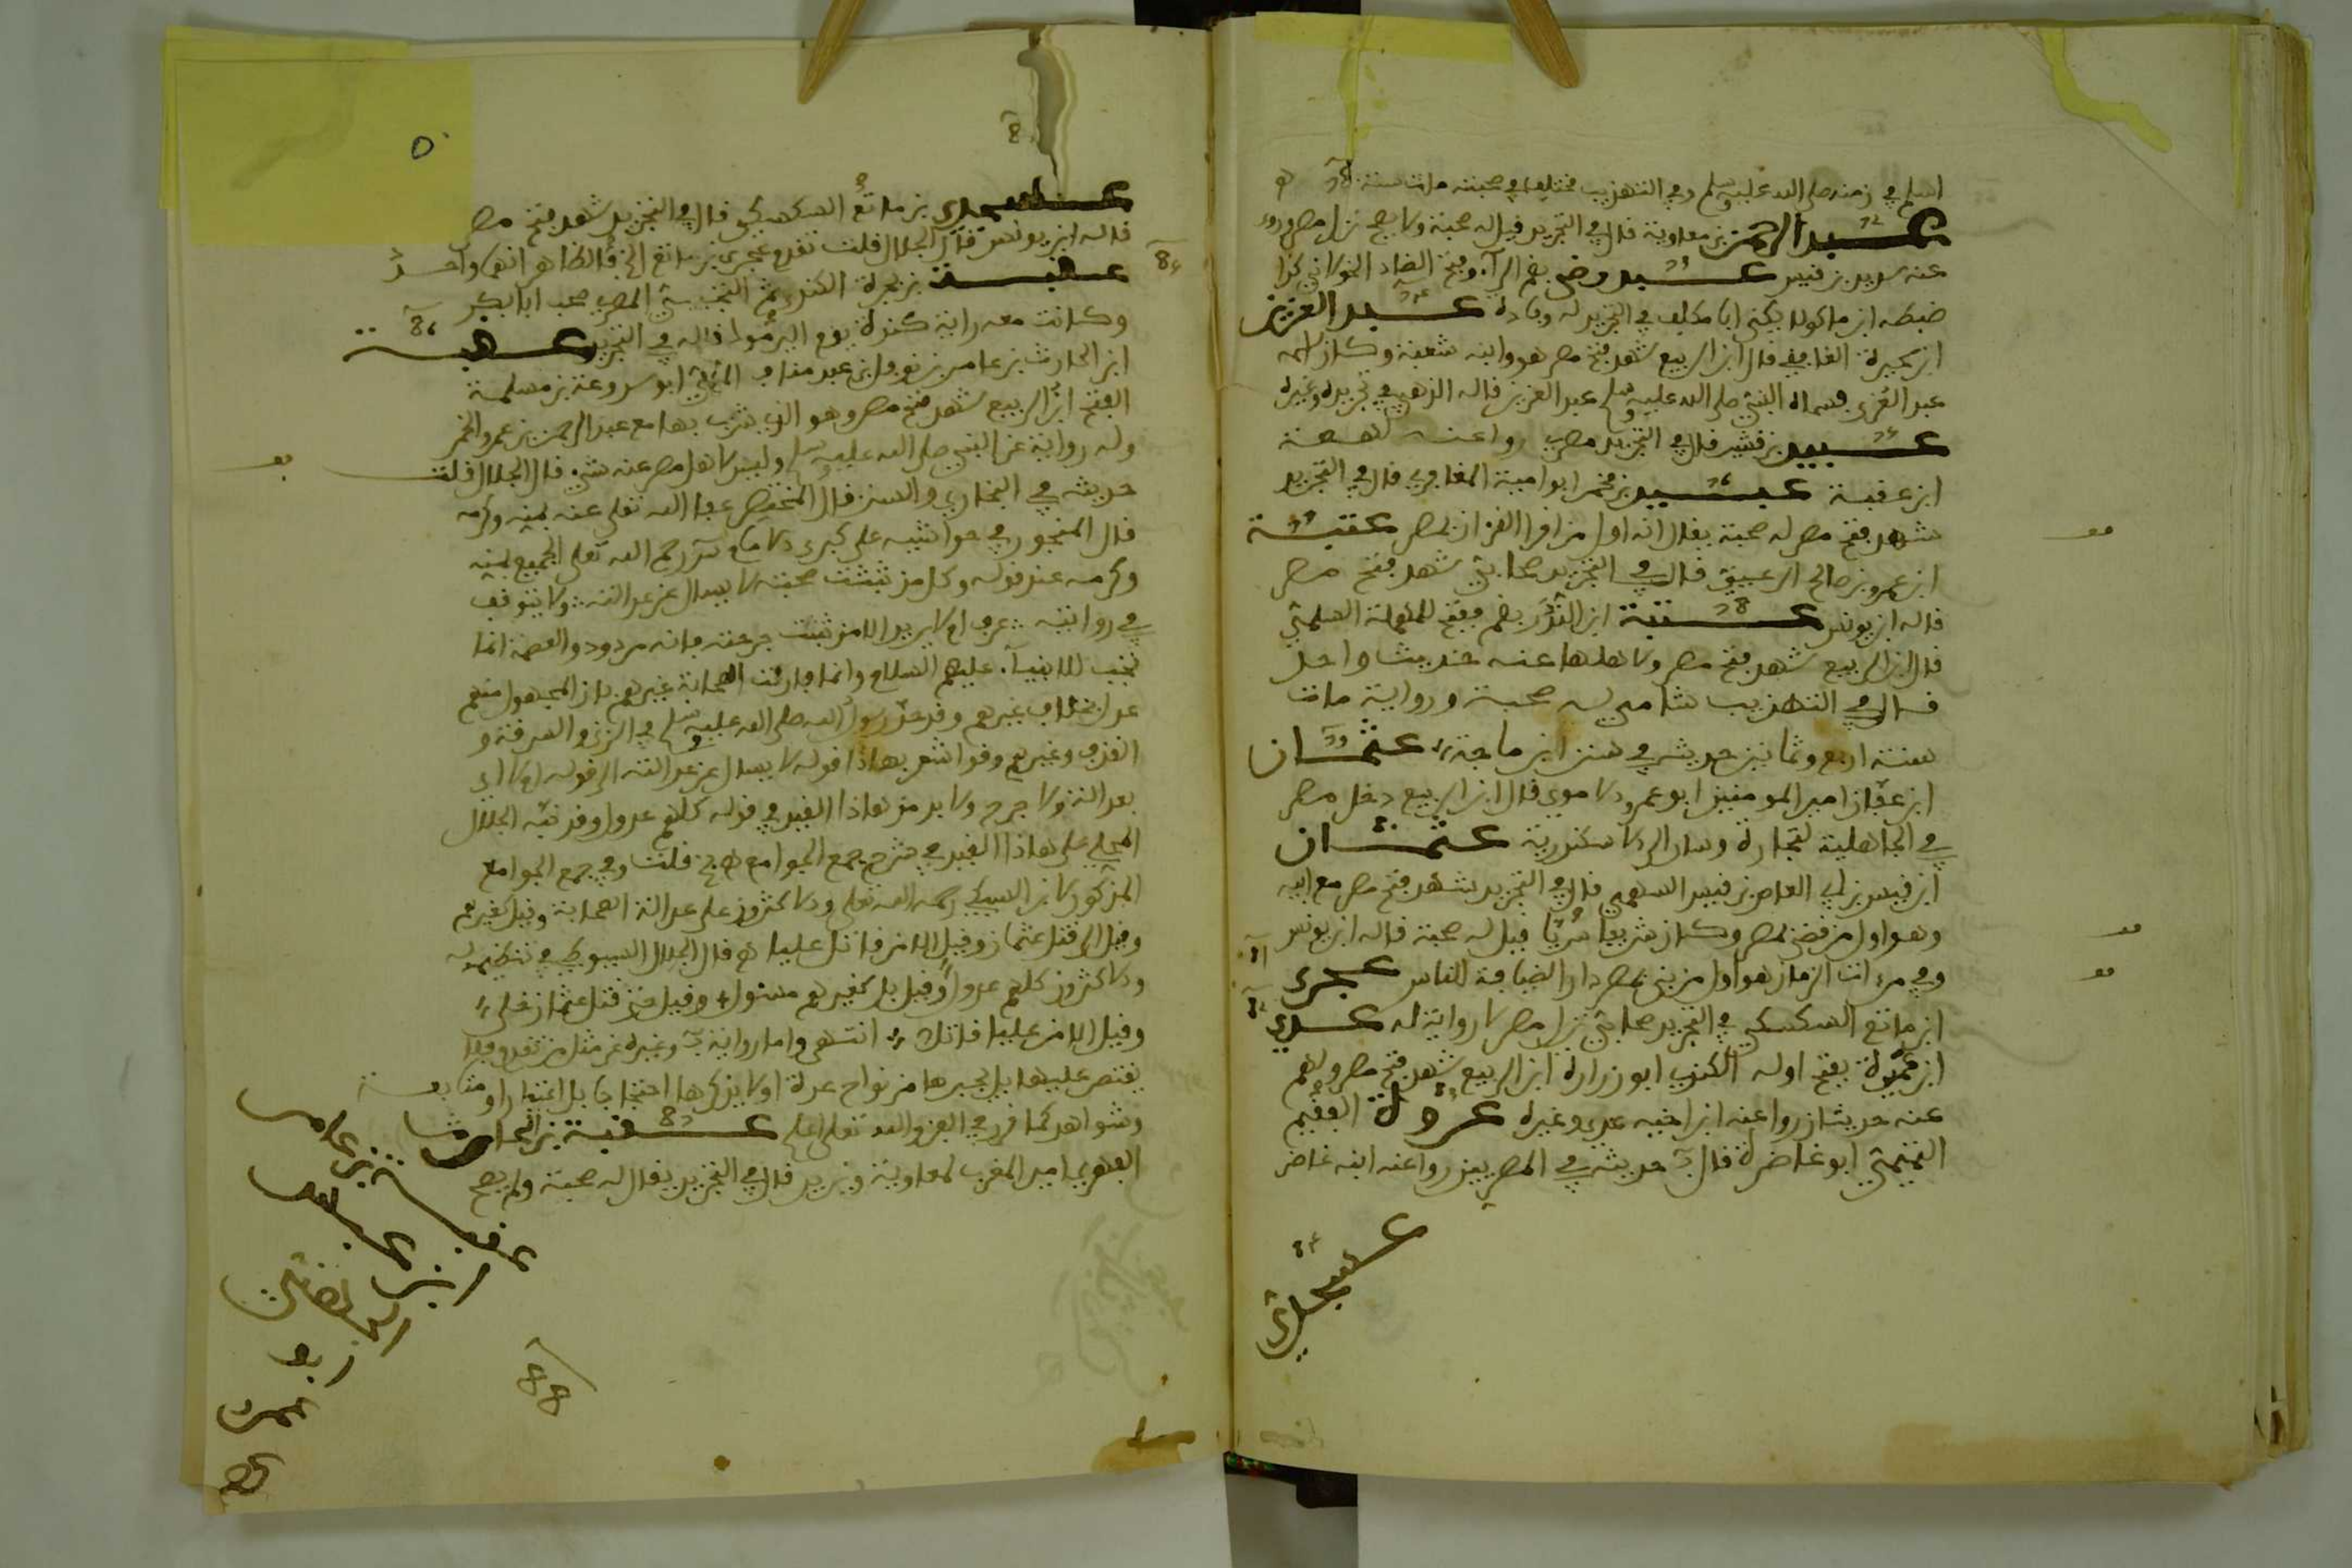 اسلم في زمنه صلى الله عليه وسلم وفي التهذيب مختلف في صحبته مات سنة
عبد الرحمن بن معاوية قال في التجريد قيل له صحبة ولا يصح نزل مصر وروى
عنه سويد بن قيس عبد رضى بضم الرآء وفتح الضاد الخولاني كذا
ضبطه ابن ماكولا يكنى ابا مكنف في التجريد له وفادة عبد العزيز
ابن سخبرة الغافقي قال ابن الربيع شهد فتح مصر هو وابنه شعبة وكان اسمه
عبد العزى فسماه النبي صلى الله عليه وسلم عبد العزيز قاله الذهبي في تجريده وغيره
عبيد بن قشير قال في التجريد مصري روا عنه لهيعة
ابن عقبة عبيد بن مخمر ابو امية المعافري قال في التجريد
شهد فتح مصر له صحبة يقال انه اول من اقرا القران بمصر عتبة
ابن عمرو بن صالح الرعيني قال في التجريد صحابي شهد فتح مصر
قاله ابن يونس عتبة ابن الندر بضم وفتح المهملة السلمي
قال ابن الربيع شهد فتح مصر ولاهلها عنه حديث واحد
قال في التهذيب شامي له صحبة ورواية مات
سنة اربع وثمانين حديثه في سنن ابن ماجة عثمان
ابن عفان امير المومنين ابو عمرو الاموي قال ابن الربيع دخل مصر
في الجاهلية لتجارة وسار الى الاسكندرية عثمان
ابن قيس بن ابي العاص بن قيس السهمي قال في التجريد شهد فتح مصر مع ابيه
وهو اول من قضى بمصر وكان شريفا سريا قيل له صحبة قاله ابن يونس
وفي مرءات الزمان هو اول من بنى بمصر دار الضيافة للناس عجري
ابن ماتع السكسكي في التجريد صحابي نزل مصر لا رواية له عدي
ابن عميرة بفتح اوله الكندي ابو زرارة ابن الربيع شهد فتح مصر ولهم
عنه حديثان روا عنه ابن اخيه عدي وغيره عروة الفقيم
التميمي ابو غاضرة قال حديثه في المصريين روا عنه ابنه غاضر
عسجدي
عسجدي بن ماتع السكسكي قال في التجريد شهد فتح مصر
قاله ابن يونس قال الجلال قلت تقدم عجري بن ماتع الخ فالظاهر انهما واحد
عقبة بن بحرة الكندي ثم التجيبي المصري صحب ابا بكر
وكانت معه راية كندة يوم اليرموك قاله في التجريد عقبة
ابن الحارث بن عامر بن نوفل بن عبد مناف المكي ابو سروعة بن مسلمة
الفتح ابن الربيع شهد فتح مصر وهو الذي شرب بها مع عبد الرحمن بن عمر الخمر
وله رواية عن النبي صلى الله عليه وسلم وليس لاهل مصر عنه شيء قال الجلال قلت
حديثه في البخاري والسنن قال المختصر عفا الله تعلى عنه بمنه وكرمه
قال المنجور في حواشيه على كبرى رحم الله تعلى الجميع بمنه
وكرمه عند قوله وكل من ثبتت صحبته لا يسال عن عدالته ولا يتوقف
في روايته لا يريد الا من ثبتت جرحته فانه مردود والعصمة انما
تجب للانبيآء عليهم السلام وانما فارقت الصحابة غيرهم بان المجهول منهم
عدل بخلاف غيرهم وقد حد رسول الله صلى الله عليه وسلم في الزنى والسرقة و
القذف وغيرهم وقد اشعر بهاذا قوله لا يسال عن عدالته الى قوله
بعدالة ولا جرح ولا بد من هاذا القيد في قوله كلهم عدول وقد نبه الجلال
المحلي على هاذا القيد في شرح جمع الجوامع قلت وفي جمع الجوامع
المذكور لابن السبكي رحمه الله تعلى والاكثرون على عدالة الصحابة وقيل كغيرهم
وقيل الى قتل عثمان وقيل الا من قاتل عليا قال الجلال السيوطي في تنظيمه له
والاكثرون كلهم عدول وقيل بل كغيرهم مسئول وقيل حتى قتل عثمان
وقيل الا من عليا قاتلا انتهى واما رواية وغيره عن مثل من تقدم فلا
يقتصر عليها بل يجبرها من نواح عدة اولا يذكرها احتجاجا بل اعتبارا ومتابعة
وشواهد كما قرر في الفن والله تعلى اعلم عقبة بن
الفهري امير المغرب لمعاوية ويزيد قال في التجريد يقال له صحبة ولم يصح
عقبة بن عامر
ابن عبس